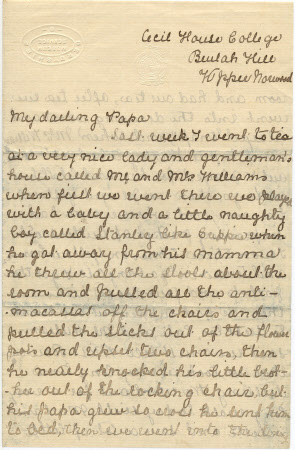 Cecil House College
Beulah Hill
Upper Norwood
My darling Papa
Last week I went to tea
at a very nice lady and gentleman's
house called Mr and Mrs Williams
when full we went there we played
with a baby and a little naughty
boy called Stanley like Cappa when
he got away from his mamma
he threw all the stools about the
room and pulled all the anti-
macassas off the chairs and
pulled the sticks out of the flower
pots and upset two chairs, then
he nearly knocked his little brot-
her out of the rocking chair but
his papa grew so cross he send him
to bed, then we went into the